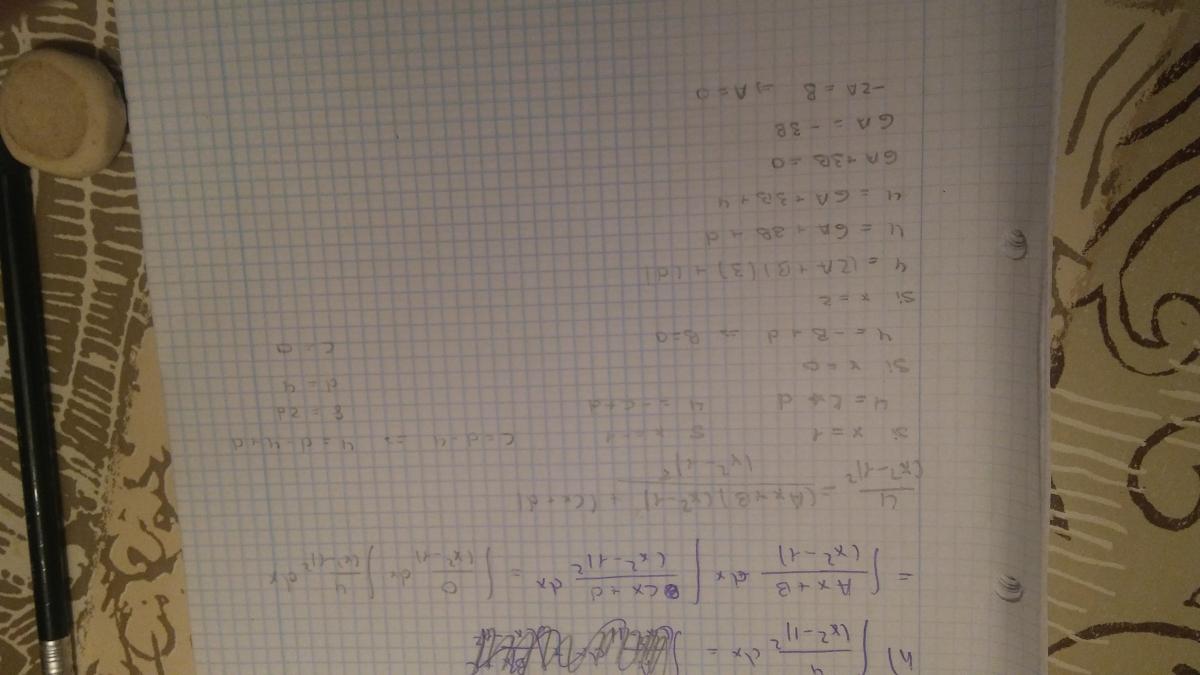 h) ∫ 4/(x²-1)² dx = ∫
= ∫ Ax+B/(x²-1) dx ∫ Cx+d/(x²-1)² dx = ∫ 0/(x²-1) dx ∫ 4/(x²-1)² dx
4/(x²-1)² = (Ax+B)(x²-1) + (cx+d)/(x²-1)²
Si x=1 Si x=-1 C=d-4 => 4=d-4+d
4=C+d 4=-c+d 8=2d
d=4
Si x=0
C=0
4=-B+d => B=0
Si x=2
4=(2A+B)(3)+(d)
4=6A+3B+d
4=6A+3B+4
6A+3B=0
6A=-3B
-2A=B => A=0